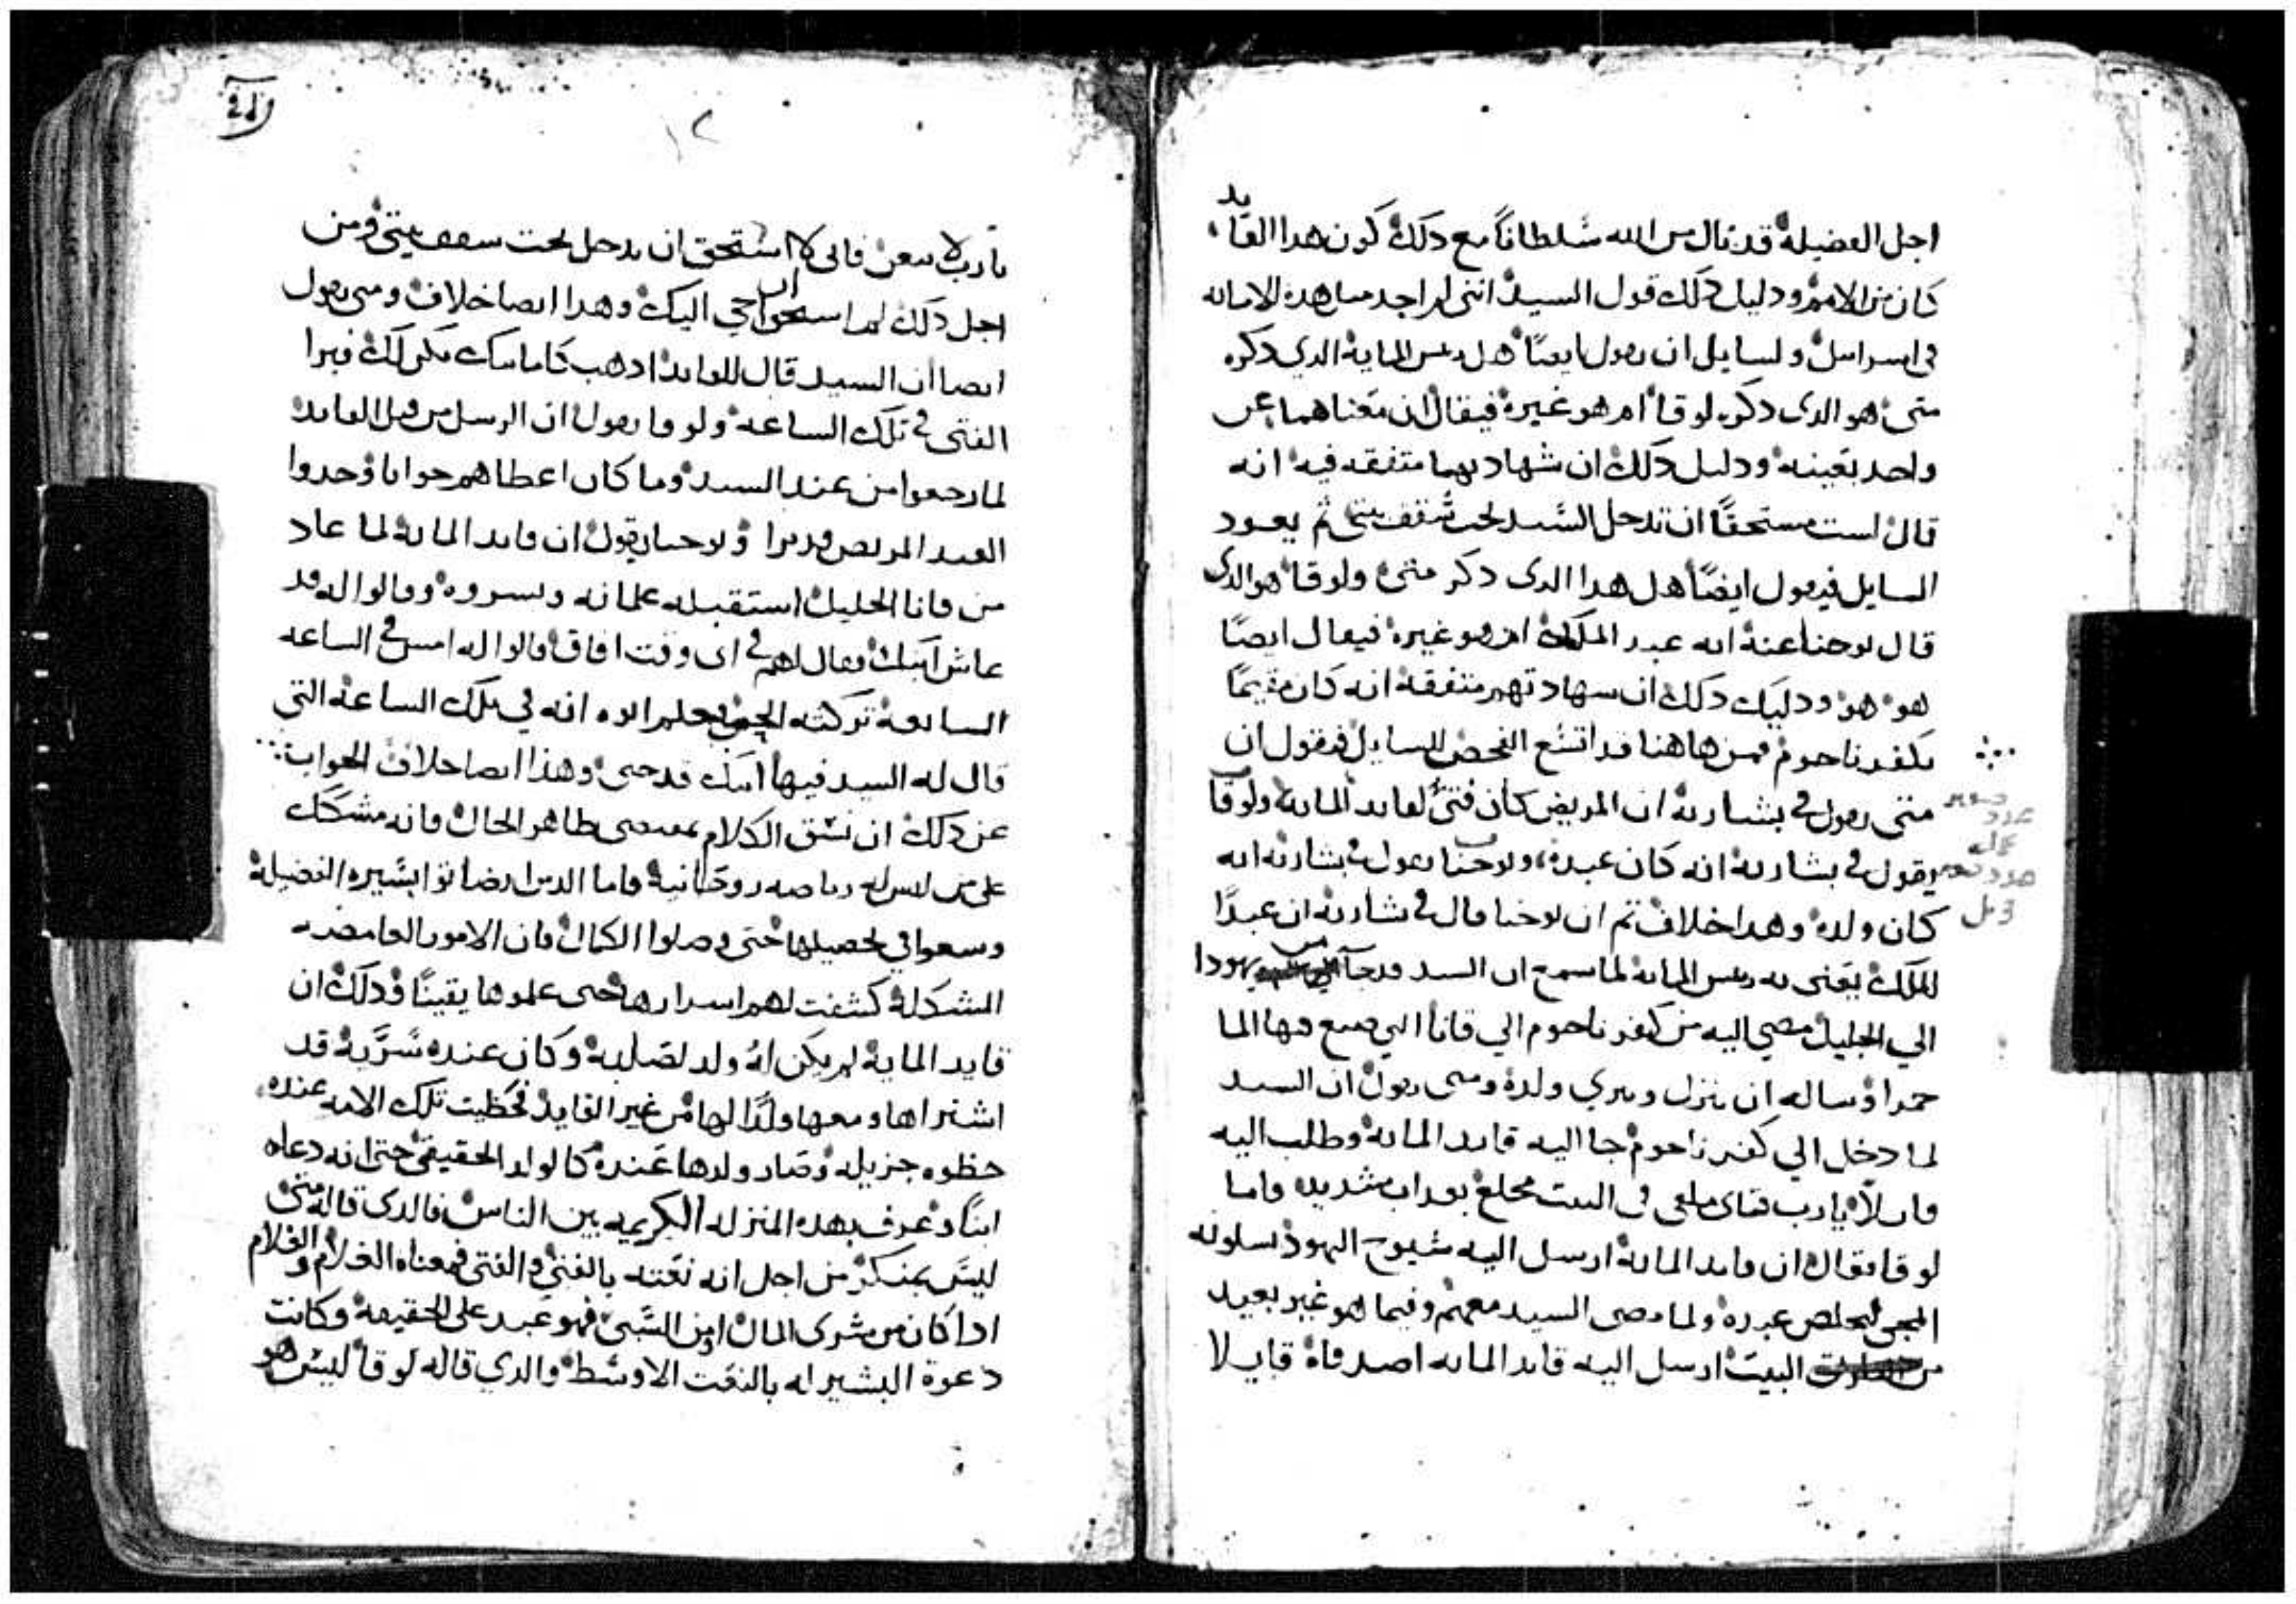 اجل الفضيلة قد نال من الله سُلطاناً مع دلك كون هدا القايد
كان من الامم ودليل دلك قول السيد انني لم اجد مثل هده الامانه
في اسراييل ولسايل ان يقول ايضاً هل ريس الماية الدي دكره
متى هو الدي دكره لوقا ام هو غيره فيقال ان معناهما عن
واحد بعينه ودليل دلك ان شهادتهما متفقه فيه انه
قال لست مستحقاً ان تدخل السيد تحت سقف بيتي ثم يعود
السايل فيقول ايضاً هل هدا الدي دكر متى ولوقا هو الدي
قال يوحنا عنه انه عبد الملك ام هو غيره فيقال ايضاً
هو هو ودليل دلك ان شهادتهم متفقه انه كان مقيماً
بكفرناحوم فمن هاهنا قد اتسع الفحص للسايل فيقول ان
متى يقول في بشارته ان المريض كان فتى لقايد الماية ولوقا
يقول في بشارته انه كان عبده ويوحنا يقول في بشارته انه
كان ولده وهدا خلاف ثم ان يوحنا قال في بشارته ان عبداً
للملك يعنى به ريس الماية لما سمع ان السيد قد جآ من يهودا
الي الجليل مضي اليه من كفرناحوم الي قانا التي صنع فيها الما
خمراً وساله ان ينزل ويبري ولده ومتى يقول ان السيد
لما دخل الي كفرناحوم جا اليه قايد الماية وطلب اليه
قايلاً يا رب فتاي ملقى في البيت مخلع بعداب شديد واما
لوقا فقال ان قايد الماية ارسل اليه شيوخ اليهود يسلونه
المجي ليخلص عبده ولما مضى السيد معهم وفيما هو غير بعيد
من البيت ارسل اليه قايد الماية اصدقاه قايلا
يا رب لا تتعن فاني لا استحق ان تدخل تحت سقف بيتي ومن
اجل دلك لم استحق ان اجي اليك وهدا ايضا خلاف ومتى يقول
ايضا ان السيد قال للقايد ادهب كامانتك يكن لك فبرا
الفتى في تلك الساعه ولوقا يقول ان الرسل من قبل القايد
لما رجعوا من عند السيد وما كان اعطاهم جوابا وجدوا
العبد المريض قد برا ويوحنا يقول ان قايد الماية لما عاد
من قانا الجليل استقبله غلمانه وبسروه وقالوا له قد
عاش ابنك فقال لهم في اي وقت افاق فقالوا له امس في الساعه
السابعة تركته الحمى فعلم ابوه انه في تلك الساعة التي
قال له السيد فيها ابنك قد حيى وهذا ايضا خلاف الجواب
عن دلك ان نسق الكلام بمقتضى ظاهر الحال فانه مشكك
على من ليس له رياضه روحانية فاما الدين ارتضاتوا بسيره الفضيلة
وسعوا في تحصيلها حتى وصلوا الكمال فان الامور الغامضه
المشكلة كشفت لهم اسرارها حتى علموها يقيناً ودلك ان
قايد الماية لم يكن له ولد لصلبه وكان عنده سُرَّية قد
اشتراها ومعها ولدًا لها من غير القايد فحظيت تلك الامه عنده
حظوه جزيله وصار ولدها عنده كالولد الحقيقي حتى انه دعاه
ابناً وعرف بهده المنزله الكريمه بين الناس فالدي قاله متى
ليس بمنكر من اجل انه نعته بالفتى والفتى فمعناه الغلام والغلام
ادا كان من شرى المال او من السبي فهو عبد على الحقيقة وكانت
دعوة البشير له بالنعت الاوسط والدي قاله لوقا ليس هو